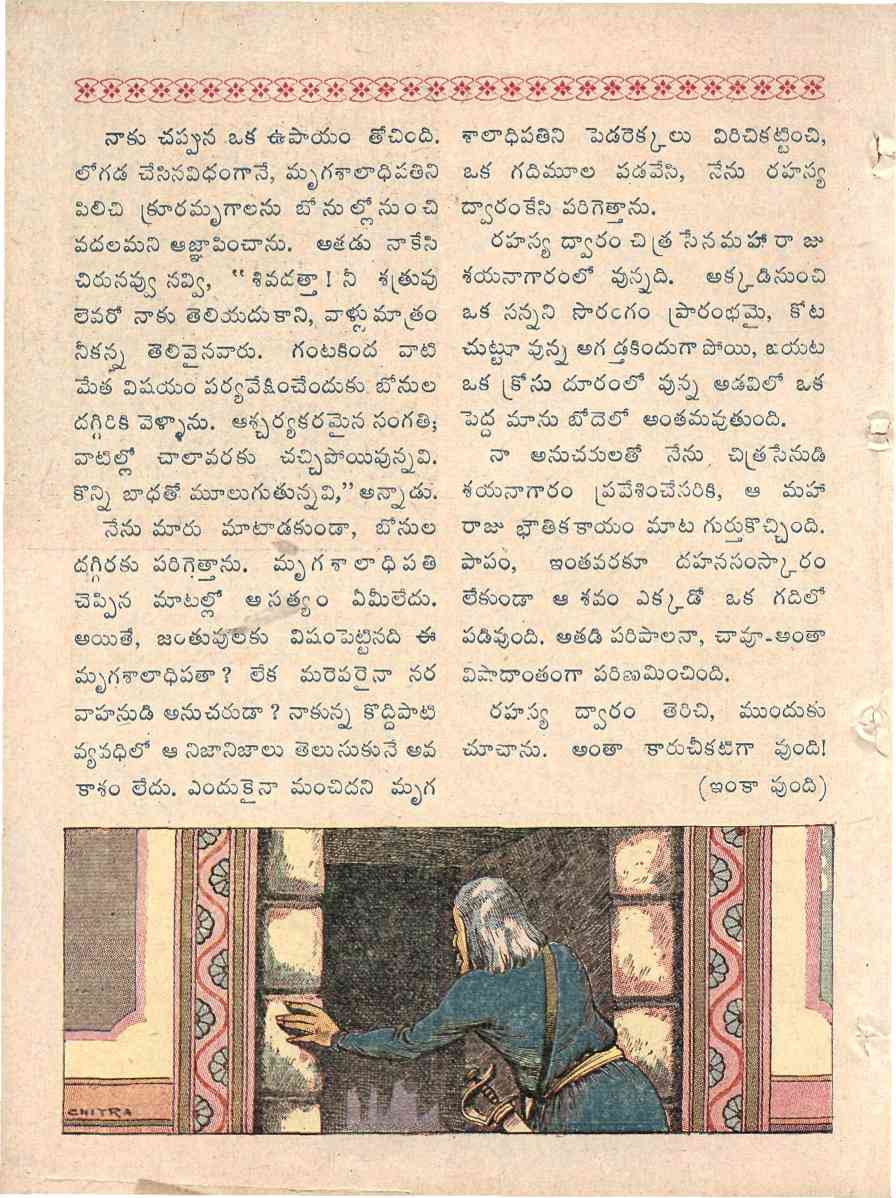 నాకు చప్పున ఒక ఉపాయం తోచింది.
లోగడ చేసినవిధంగానే, మృగశాలాధిపతిని
పిలిచి క్రూరమృగాలను బోనుల్లోనుంచి
వదలమని ఆజ్ఞాపించాను. ఆతడు నాకేసి
చిరునవ్వు నవ్వి, “శివదత్తా! నీ శత్రువు
లెవరో నాకు తెలియదుకాని, వాళ్లుమాత్రం
నీకన్న తెలివైనవారు. గంటకింద వాటి
మేత విషయం పర్యవేక్షించేందుకు బోనుల
దగ్గిరికి వెళ్ళాను. ఆశ్చర్యకరమైన సంగతి;
వాటిల్లో చాలావరకు చచ్చిపోయివున్నవి.
కొన్ని బాధతో మూలుగుతున్నవి,” అన్నాడు.
నేను మారు మాటాడకుండా, బోనుల
దగ్గిరకు పరిగెత్తాను. మృగశాలాధిపతి
చెప్పిన మాటల్లో అసత్యం ఏమీలేదు.
అయితే, జంతువులకు విషంపెట్టినది ఈ
మృగశాలాధిపతా? లేక మరెవరైనా నర
వాహనుడి అనుచరుడా? నాకున్న కొద్దిపాటి
వ్యవధిలో ఆ నిజానిజాలు తెలుసుకునే అవ
కాశం లేదు. ఎందుకైనా మంచిదని మృగ
శాలాధిపతిని పెడరెక్కలు విరిచికట్టించి,
ఒక గదిమూల పడవేసి, నేను రహస్య
ద్వారంకేసి పరిగెత్తాను.
రహస్య ద్వారం చిత్రసేనమహారాజు
శయనాగారంలో వున్నది. అక్కడినుంచి
ఒక సన్నని సొరంగం ప్రారంభమై, కోట
చుట్టూ వున్న అగడ్తకిందుగా పోయి, బయట
ఒక క్రోసు దూరంలో వున్న అడవిలో ఒక
పెద్ద మాను బోదెలో అంతమవుతుంది.
నా అనుచరులతో నేను చిత్రసేనుడి
శయనాగారం ప్రవేశించేసరికి, ఆ మహా
రాజు భౌతికకాయం మాట గుర్తుకొచ్చింది.
పాపం, ఇంతవరకూ దహనసంస్కారం
లేకుండా ఆ శవం ఎక్కడో ఒక గదిలో
పడివుంది. అతడి పరిపాలనా, చావూ-అంతా
విషాదాంతంగా పరిణమించింది.
రహస్య ద్వారం తెరిచి, ముందుకు
చూచాను. అంతా కారుచీకటిగా వుంది!
(ఇంకా వుంది)
CHITRA